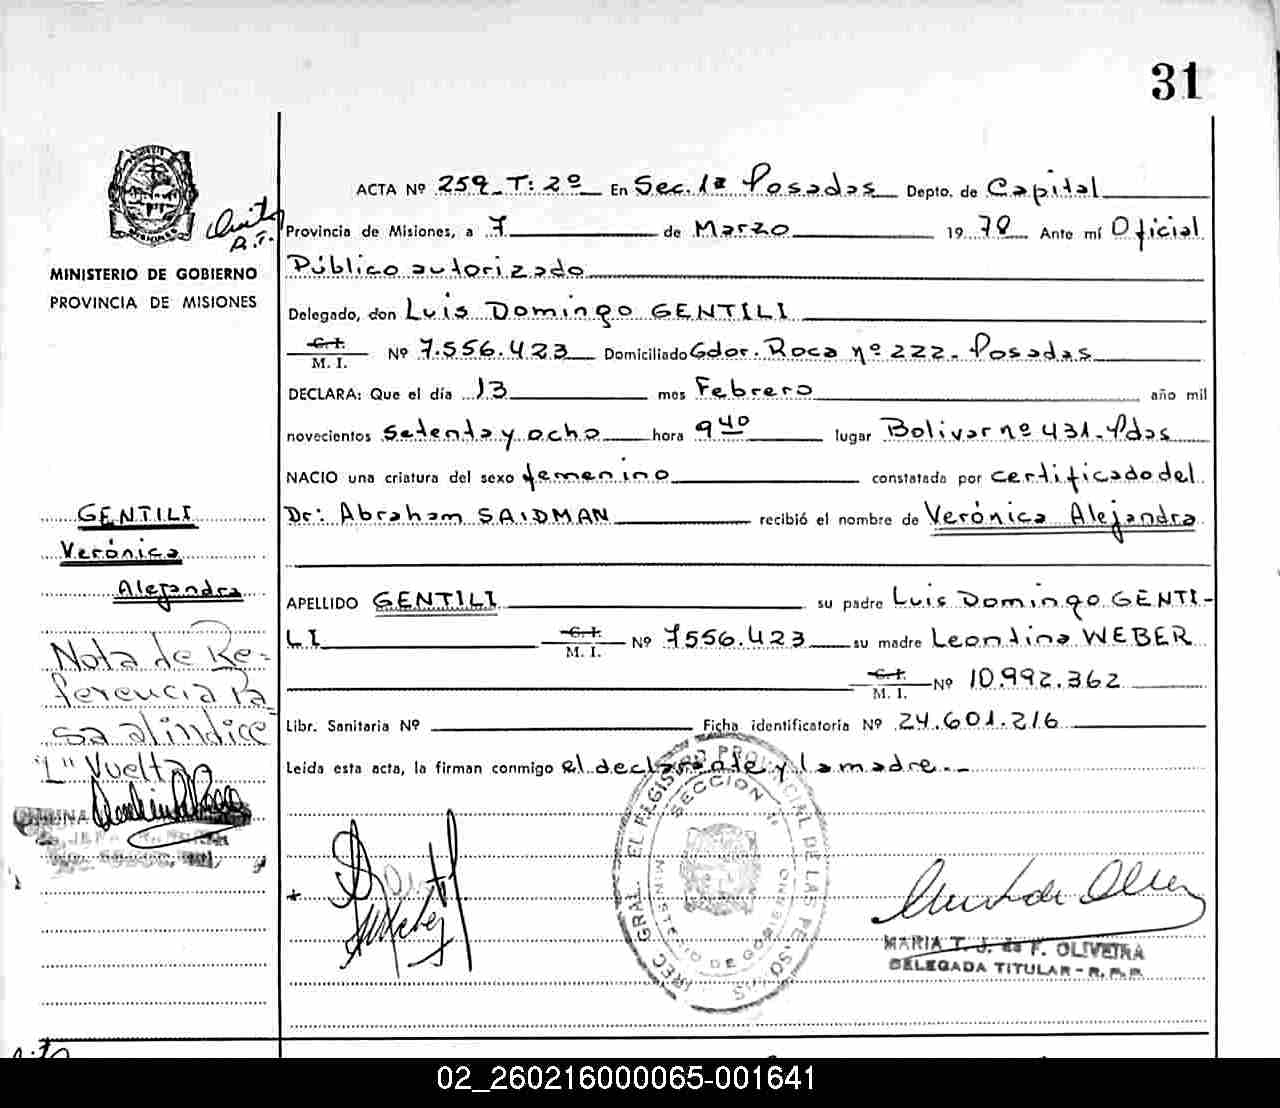 31
ACTA Nº 259 T: 2º En Sec. 1ª Posadas Depto. de Capital
Provincia de Misiones, a 7 de Marzo 1978 Ante mí Oficial
Público autorizado
Delegado, don Luis Domingo GENTILI
C. I.
M. I. Nº 7.556.423 Domiciliado Gdor. Roca nº 222 - Posadas
DECLARA: Que el día 13 mes Febrero año mil
novecientos setenta y ocho hora 9 40 lugar Bolivar nº 431 - Pdas
NACIO una criatura del sexo femenino constatada por certificado del
Dr: Abraham SAIDMAN recibió el nombre de Verónica Alejandra
APELLIDO GENTILI su padre Luis Domingo GENTI-
LI C. I. M. I. Nº 7556.423 su madre Leontina WEBER
C. I. M. I. Nº 10.992.362
Libr. Sanitaria Nº Ficha identificatoria Nº 24.601.216
Leída esta acta, la firman conmigo el declarante y la madre.-
MINISTERIO DE GOBIERNO
PROVINCIA DE MISIONES
GENTILI
Verónica
Alejandra
Nota de Re-
ferencia Pa-
sa al indice
"L" Vuelta
EL REGISTRO PROVINCIAL DE LAS PERSONAS
SECCION 1ª
MINISTERIO DE GOBIERNO
MARIA T. J. de F. OLIVEIRA
DELEGADA TITULAR - R. P. P.
02_260216000065-001641